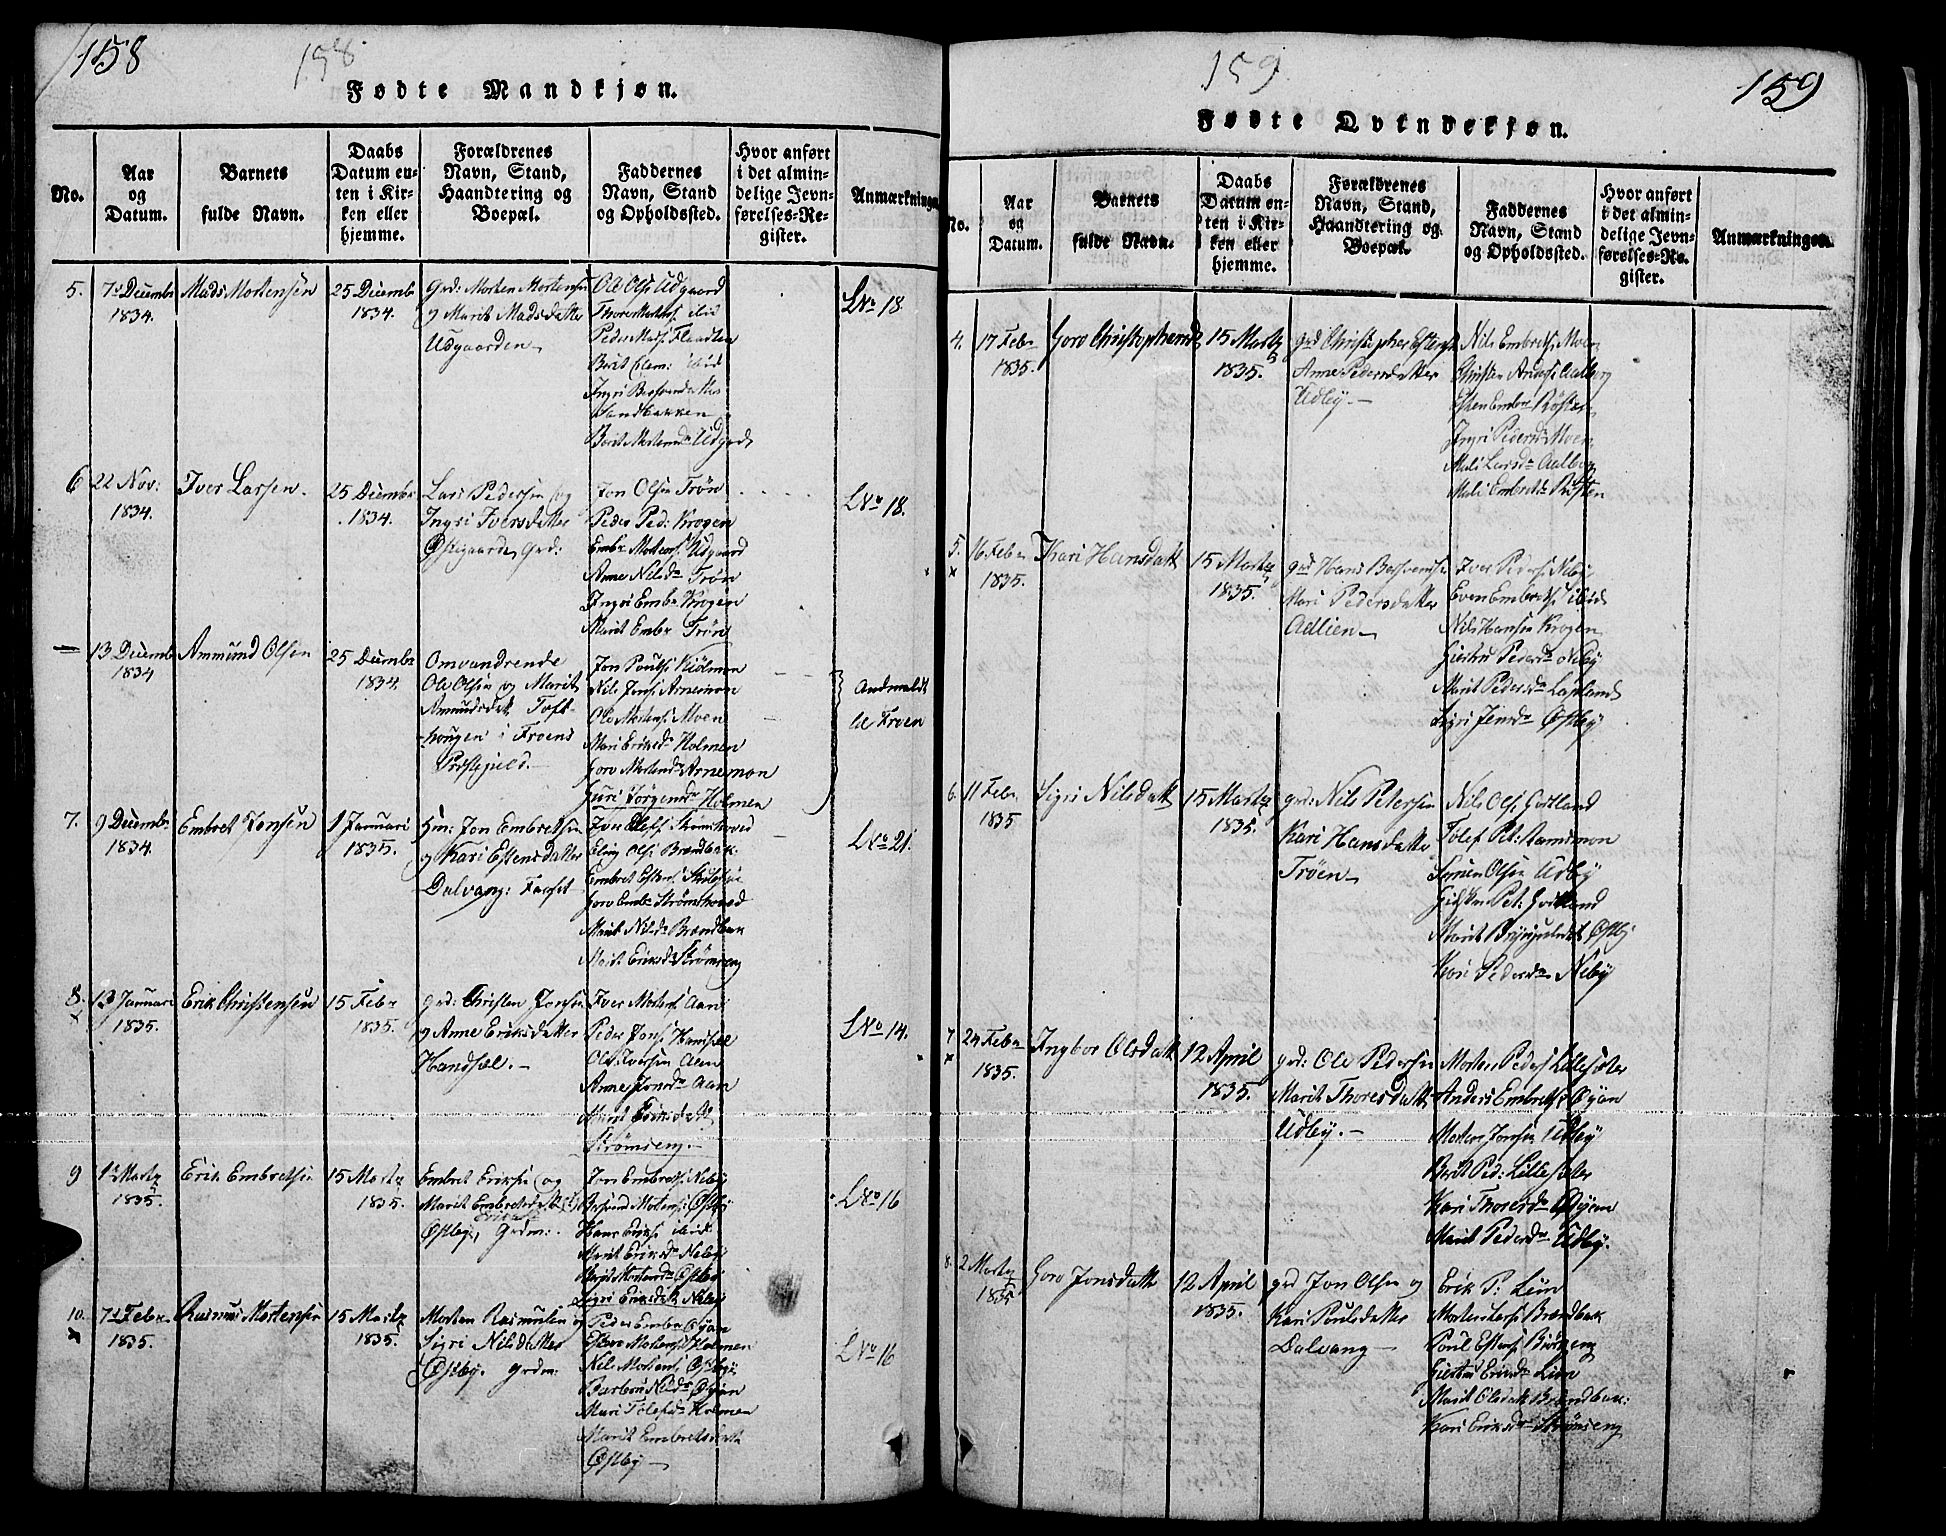 158
158
Fødte Mandkjøn.
No.
Aar
og
Datum.
Barnets
fulde Navn.
Daabs
Datum en-
ten i Kir-
ken eller
hjemme.
Forældrenes
Navn, Stand,
Haandtering og
Boepæl.
Faddernes
Navn, Stand
og Opholdssted.
Hvor anført
i det almin-
delige Jevn-
førelses-Re-
gister.
Anmærkninger
5.
7de Decembr
1834.
Mads Mortensen
25 Decembr
1834.
Grd: Morten Mortensen
og Marit Madsdatter
Udgaarden
Ole Ols: Udgaard
Thore Mortens: ibid
Peder Mads:
Berit Clem: ibid
Ingri
Berit Mortensdr Udgrds
LNo 18.
6
22 Nov:
1834.
Iver Larsen.
25 Decembr
1834.
Lars Pedersen og
Ingri Iversdatter
Østgaarden, Grd:
Jon Olsen Trøn
Peder Ped: Krogen
Embr Mortens: Udgaard
Anne Nilsdr Trøn
Ingri Embr Krogen
Marit Embr Trøn
LNo 18.
—
13 Decembr
1834
Ammund Olsen
25 Decembr
1834.
Omvandrende
Ole Olsen og Marit
Amundsdatt Toft-
hougen i Froens
Præstegjeld.
Jon Pouls: Kiølmon
Nils Jens: Arnemon
Ole Mortens: Moen
Mari Eriksdr Holmen
Goro Mortensdr Arnemon
Guri Jørgensdr Holmen
Andmeldt
til Froen
7.
9 Decembr
1834.
Embret Jonsen
1 Januari
1835.
Hm: Jon Embretsen
og Kari Estensdatter
Dalvang: Faaset
Iver Olefs: Strømshoved
Eling Ols: Brændbak.
Embret Estens:
Goro Embr Strømshoved
Marit Nilsdr Brændbak
Marit Eriksdr Strømseng
LNo 21.
8.
x
13 Januari
1835.
Erik Christensen
15 Febr
1835.
Grd: Christen Jonsen
og Anne Eriksdatter
Handsæl.
Iver Mortens: Aan
Peder Jons: Handsæl
Ole Iversen Aan
Anne Jonsdr Aan
Marit Eriksdatt
Strømseng.
LNo 14.
9
1de Martz
1835.
Erik Embretsen
15 Martz
1835.
Embret Eriksen og
Marit Embretsdatt
Østby, Grdm:
Jon Embrets: Neby
Besvend Mortens: Østby
Hans Eriks: ibid:
Marit Eriksdr Neby
Marit Mortensdr Østby
Sigri Eriksdatt Neby
LNo 16
10.
x
7de Febr
1835.
Rasmus Mortensen
15 Martz
1835.
Morten Rasmusen og
Sigri Nilsdatter
Østby. Grdm:
Peder Embr Øyan
Esten Mortens: Holmen
Nils Mortens: Østby
Barbru Nilsdr Øyan
Mari Tolefsdr Holmen
Marit Embretsdatt
Østby
LNo 16
159
159
Fødte Qvindekjøn.
No.
Aar
og
Datum.
Barnets
fulde Navn.
Daabs
Datum en-
ten i Kir-
ken eller
hjemme.
Forældrenes
Navn, Stand,
Haandtering og
Boepæl.
Faddernes
Navn, Stand
og Opholdssted.
Hvor anført
i det almin-
delige Jevn-
førelses-Re-
gister.
Anmærkninger.
4.
17 Febr
1835.
Goro Christophersd
15 Martz
1835.
Grd Christopher Estensen
Anne Pedersdatter
Udby.
Nils Embrets: Moen
Christen Arnes: Aalborg
Esten Embr Røsten
Ingri Pedersdr Moen
Mali Larsdr Aalborg
Mali Embretsdr Røsten
5.
x
16 Febr
1835.
Kari Hansdatt
15 Martz
1835.
Grd Hans Besvendsen
Mari Pedersdatter
Adlien
Iver Peders: Neby
Even Embrets: ibid
Nils Hansen Krogen
Giertru Pedersdr Neby
Marit Pedersdr Lapland
Sigri Jensdr Østby
6.
11 Febr.
1835
Sigri Nilsdatt
15 Martz
1835.
Grd: Nils Petersen
Kari Hansdatter
Trøen
Nils Ols: Godtland
Tolef Pet: Aamsmon
Simen Olsen Udby
Gidsken Pet: Godtland
Marit Brynjulsdatt Østby
Kari Pedersdr Neby
7
x
24 Febr
1835.
Ingbor Olsdatt
12 April
1835.
Grd: Ole Pedersen
Marit Thoresdatter
Udby.
Morten Peders: Lillesæter
Anders Embrets: Øyan
Morten Jonsen Udby
Berit Ped: Lillesæter
Kari Thoresdr Øyan
Marit Pedersdr Udby.
8.
2 Martz
1835
Goro Jonsdatt
12 April
1835.
Grd Jon Olsen og
Kari Poulsdatter
Dalvang
Erik P: Lien
Morten Lars: Brændbak
Poul Estens: Biørseng
Giertru Ericsdr Lien
Marit Olsdatt Brændbak:
Kari Eriksdr Strømseng